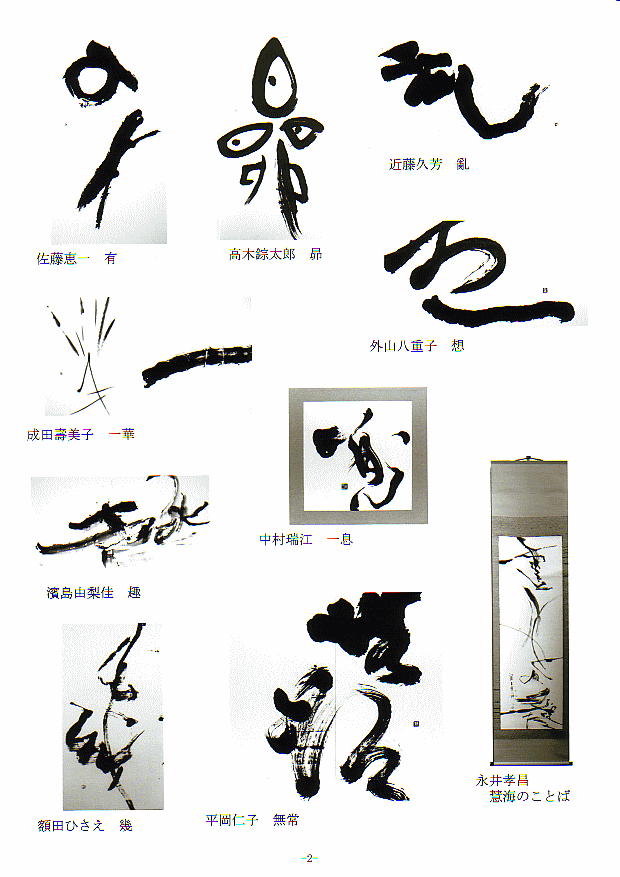 佐藤恵一　有
高木鍂太郎　昴
近藤久芳　亂
外山八重子　想
成田壽美子　一華
中村瑞江　一息
濱島由梨佳　趣
永井孝昌
慧海のことば
額田ひさえ　幾
平岡仁子　無常
-2-